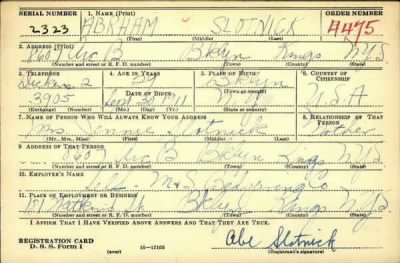 SERIAL NUMBER 1. NAME (Print) ORDER NUMBER
2323 ABRHAM SLOTNICK 4475
(First) (Middle) (Last)
2. ADDRESS (Print)
860 Ave B Bklyn Kings N.Y.S
(Number and street or R. F. D. number) (Town) (County) (State)
3. TELEPHONE 4. AGE IN YEARS 5. PLACE OF BIRTH 6. COUNTRY OF CITIZENSHIP
2 29 Bklyn
DATE OF BIRTH
U.S.A
(Exchange) (Number) (Mo.) (Day) (Yr.) (State or country)
7. NAME OF PERSON WHO WILL ALWAYS KNOW YOUR ADDRESS 8. RELATIONSHIP OF THAT PERSON
Mrs. Jennie Slotnick Mother
(Mr., Mrs., Miss) (First) (Middle) (Last)
9. ADDRESS OF THAT PERSON
860 Ave B Bklyn Kings N.Y.S
(Number and street or R. F. D. number) (Town) (County) (State)
10. EMPLOYER'S NAME
Co
11. PLACE OF EMPLOYMENT OR BUSINESS
Watkins St Bklyn Kings NYS
(Number and street or R. F. D. number) (Town) (County) (State)
I AFFIRM THAT I HAVE VERIFIED ABOVE ANSWERS AND THAT THEY ARE TRUE.
REGISTRATION CARD
D. S. S. Form 1 (over) 16—17105
Abe Slotnick
(Registrant's signature)